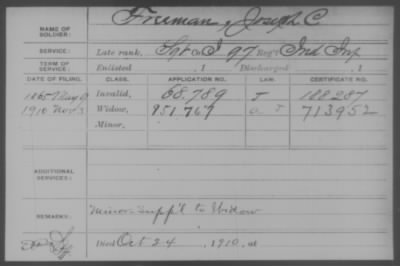 NAME OF SOLDIER: Freeman, Joseph C
SERVICE: Late rank, Sgt Co. I, 97 Reg't Ind Inf
TERM OF SERVICE: Enlisted , 1 Discharged , 1
DATE OF FILING. CLASS. APPLICATION NO. LAW. CERTIFICATE NO.
1865 Aug 9 Invalid, 68.789 J 188287
1910 Nov 3 Widow, 951.767 J 713952
Minor,
ADDITIONAL SERVICES:
REMARKS: Minor-Suppl to Widow
Died Oct 24, 1910, at